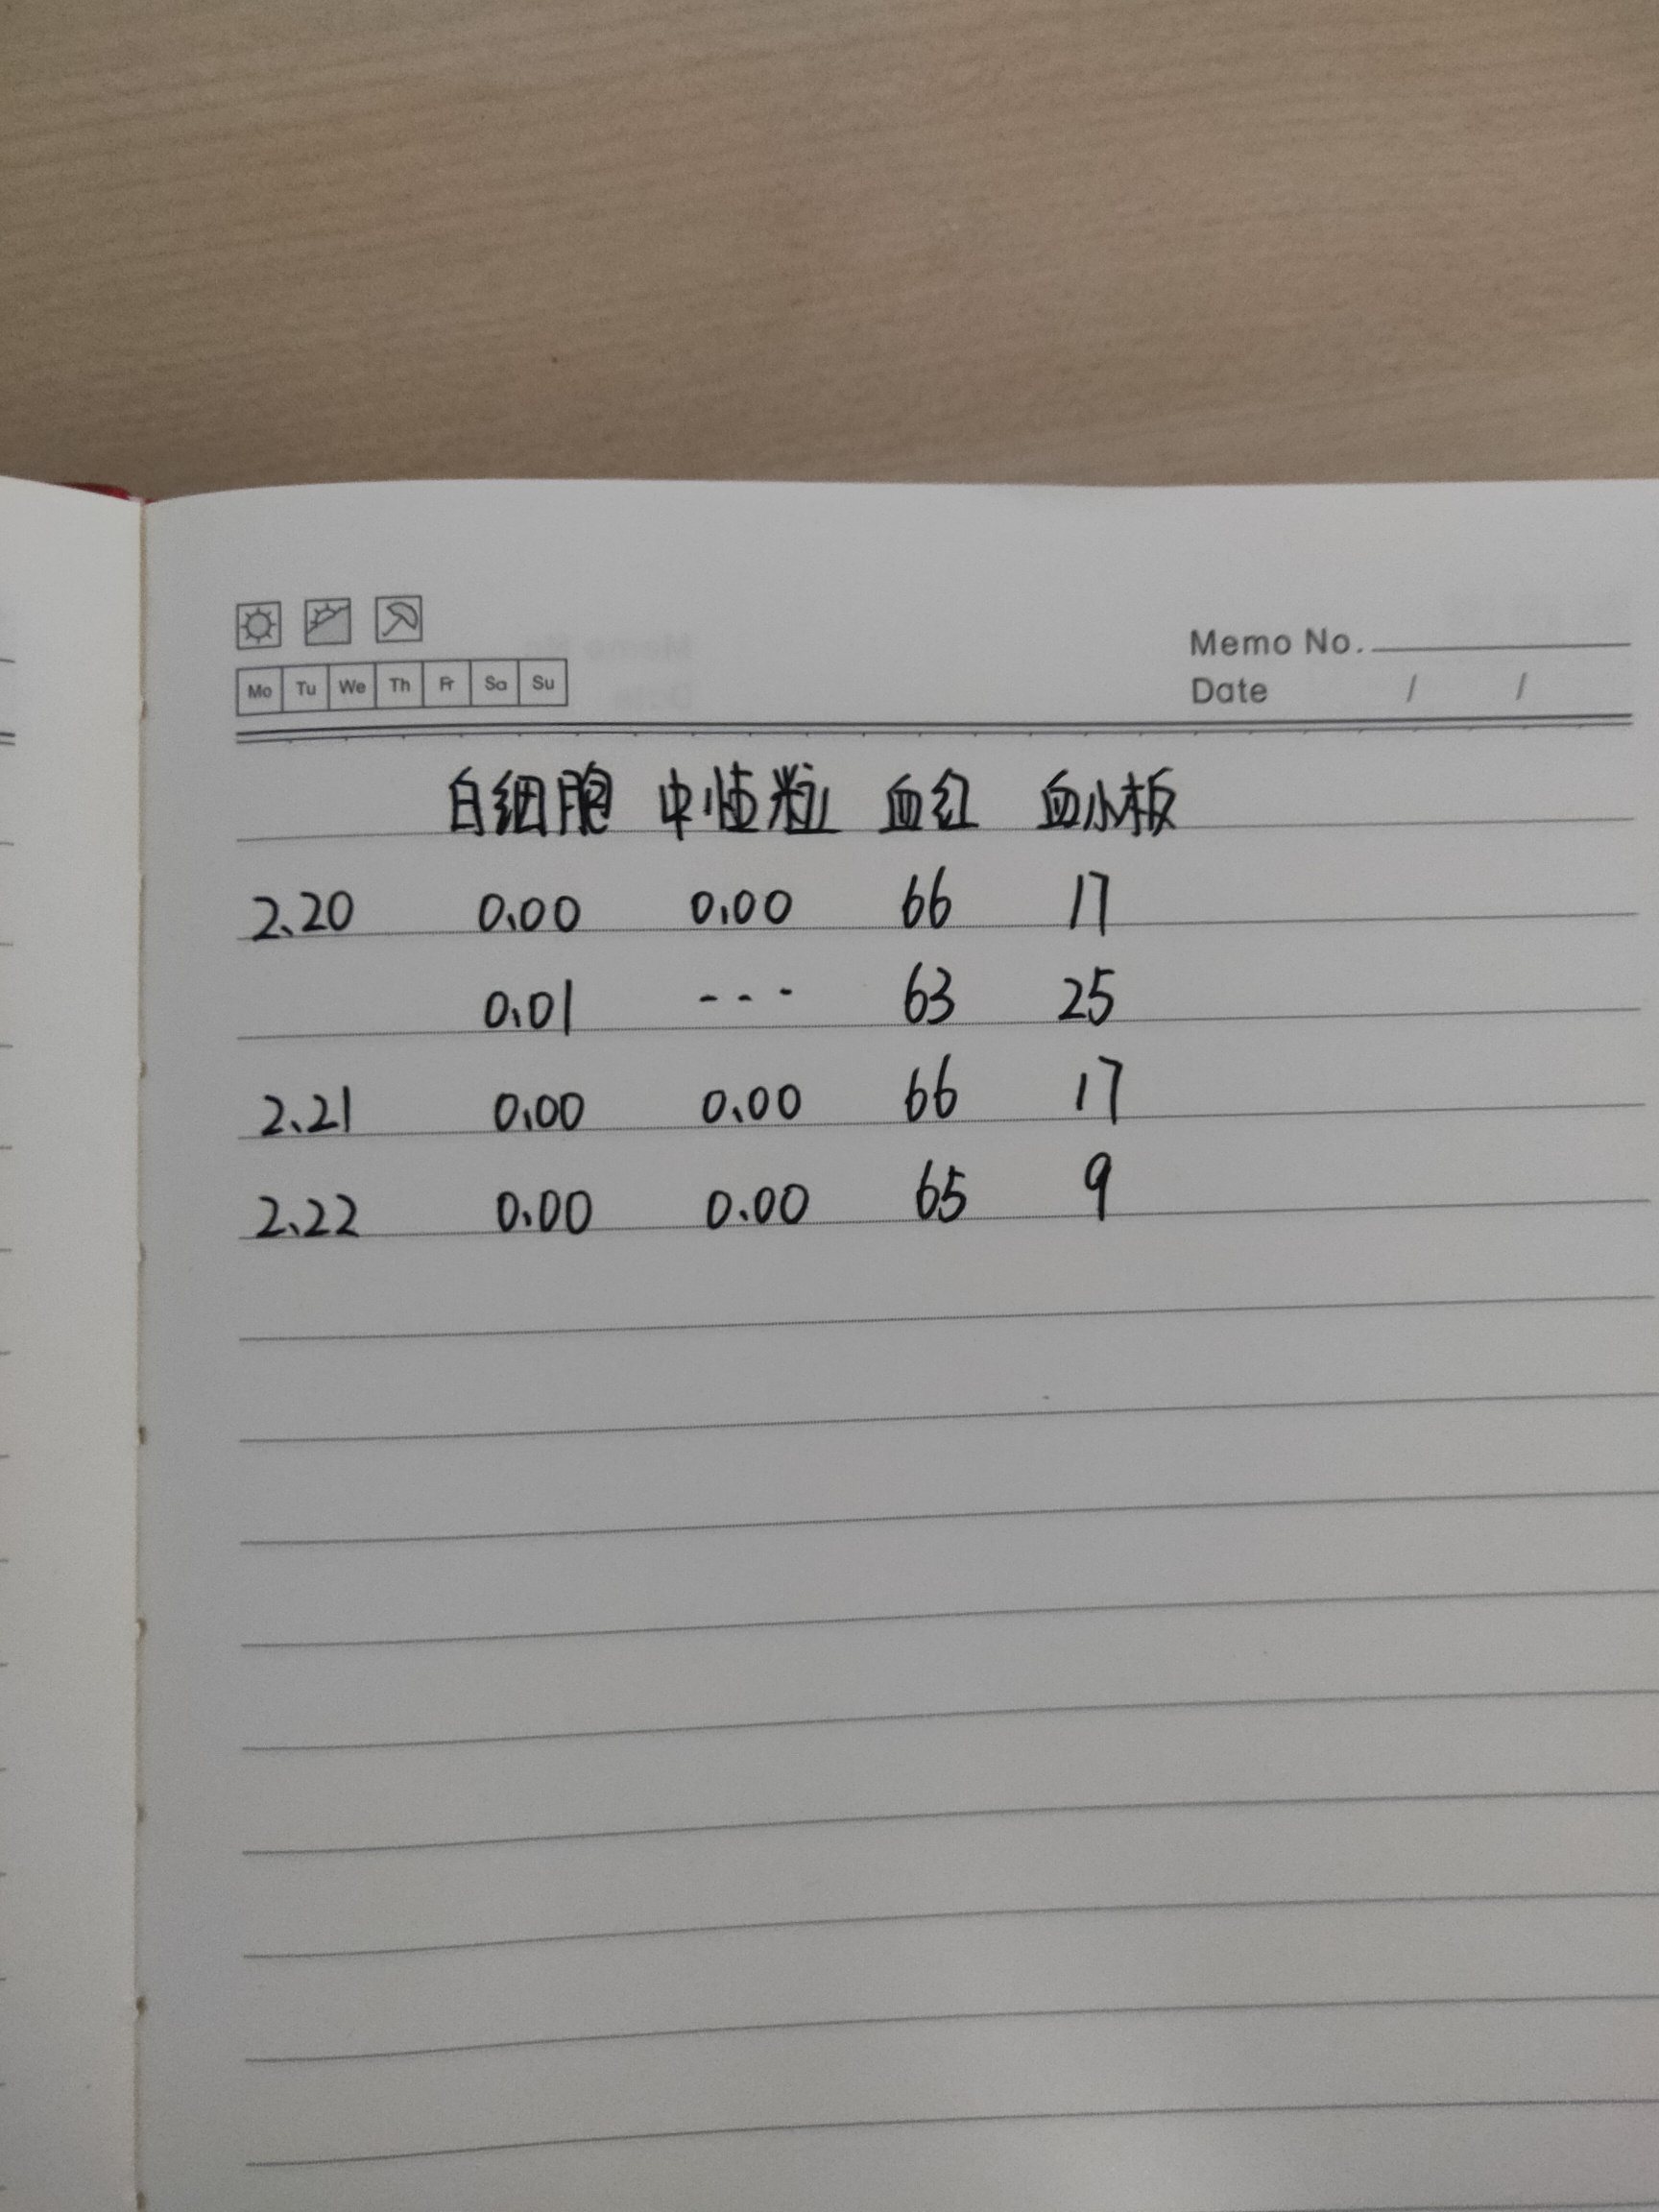 Memo No.
Mo Tu We Th Fr Sa Su
Date / /
白细胞 中性粒 血红 血小板
2.20 0.00 0.00 66 17
0.01 --- 63 25
2.21 0.00 0.00 66 17
2.22 0.00 0.00 65 9